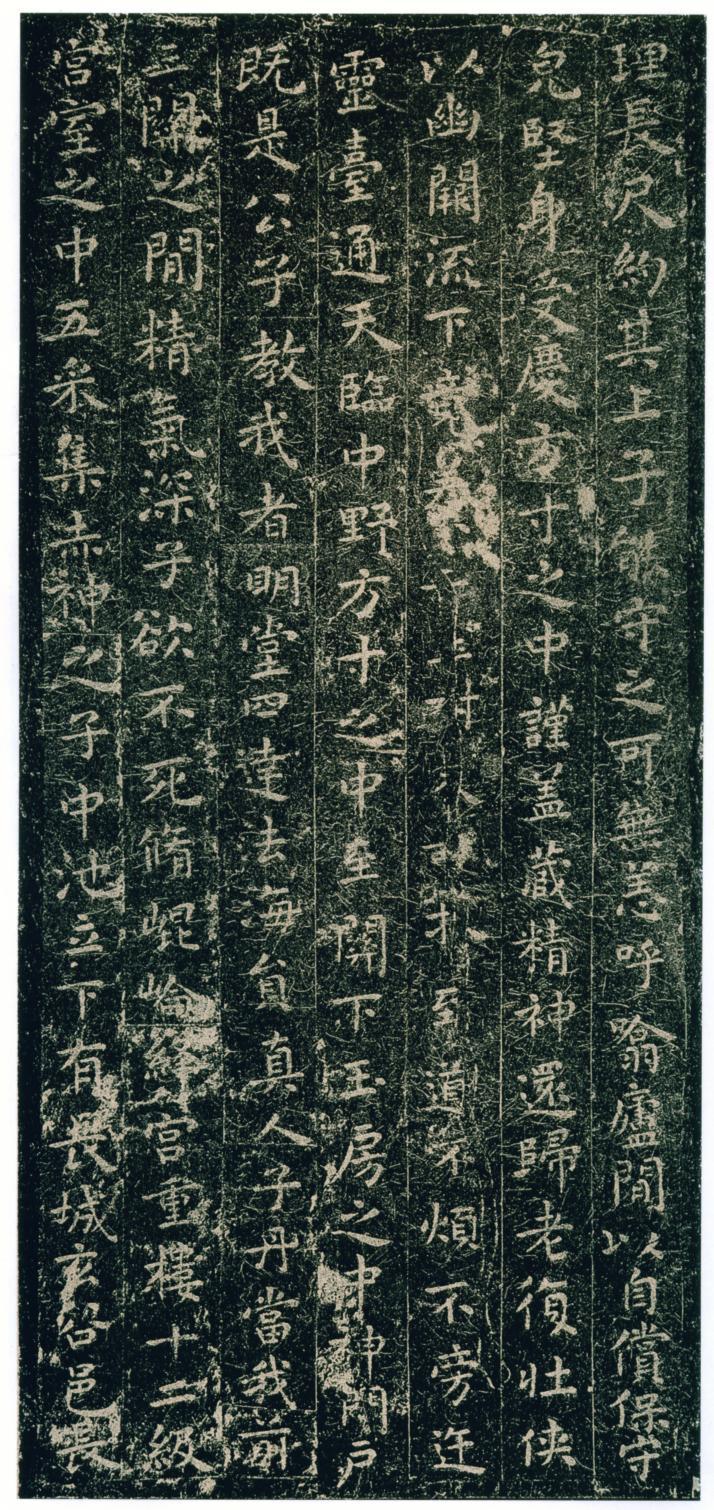 理長尺約其上子能守之可無恙呼噏廬間以自償保守
皃堅身受慶方寸之中謹蓋藏精神還歸老復壯俠
以幽闕流下樹扶至道不煩不旁迕
靈臺通天臨中野方寸之中至關下玉房之中神門戶
既是公子教我者明堂四達法海員真人子丹當我前
三關之間精氣深子欲不死脩崐崘絳宮重樓十二級
宮室之中五采集赤神之子中池立下有長城玄谷邑長